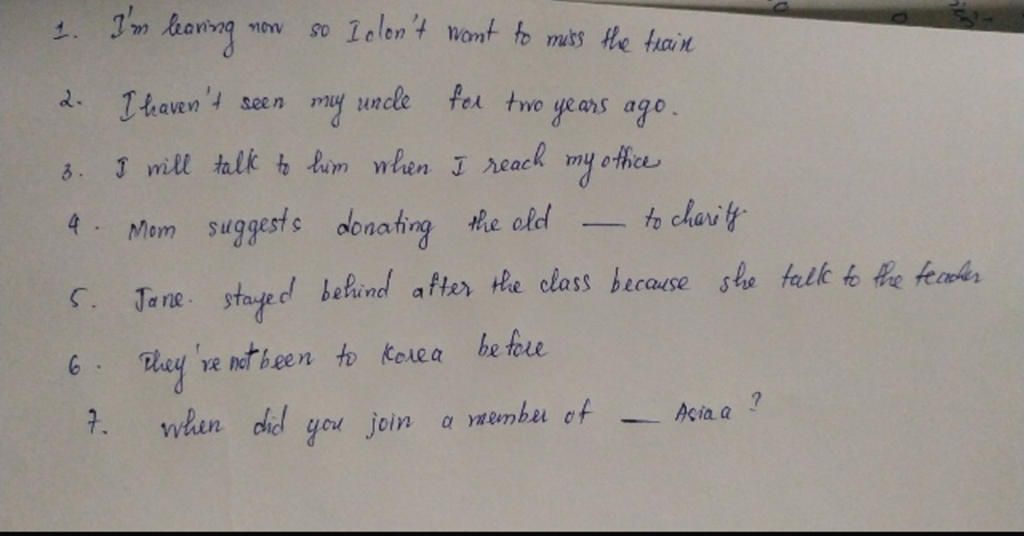 1. I'm leaving now so I don't want to miss the train
2. I haven't seen my uncle for two years ago.
3. I will talk to him when I reach my office
4. Mom suggests donating the old — to charity
5. Jane stayed behind after the class because she talk to the teacher
6. They're not been to Korea before
7. When did you join a member of — Asiaa?